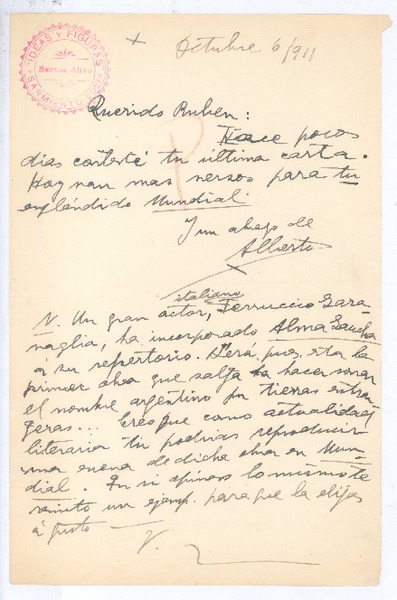 IDEAS Y FIGURAS
Buenos Aires
SARMIENTO
Octubre 6/911
Querido Ruben:
Hace pocos
días contesté tu última carta.
Hoy van mas versos para tu
espléndido Mundial
Y un abrazo de
Alberto
italiano
N. Un gran actor, Ferruccio Gara-
vaglia, ha incorporado Alma Gaucha
á su repertorio. Será, pues, esta la
primer obra que salga a hacer sonar
el nombre argentino en tierras extran
geras... Creo que como actualidad
literaria tu podrias reproducir
una escena de dicha obra en Mun-
dial. Tu si opinas lo mismo te
remito un ejemp. para que la elijas
á gusto —
V.